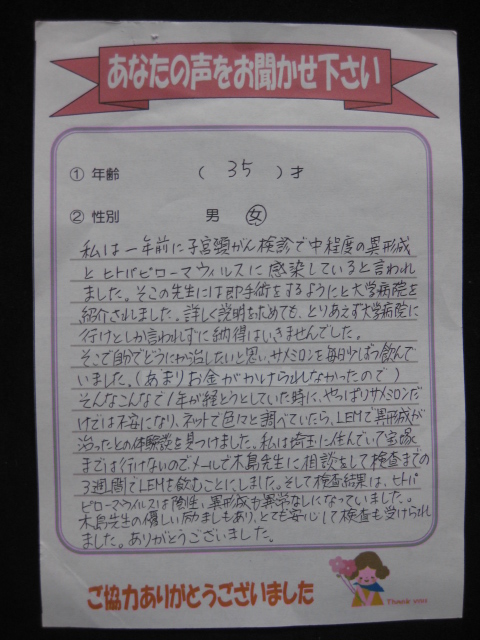 あなたの声をお聞かせ下さい
① 年齢 ( 35 ) 才
② 性別 男 女
私は一年前に子宮頸がん検診で中程度の異形成
とヒトパピローマウィルスに感染していると言われ
ました。そこの先生には即手術をするようにと大学病院を
紹介されました。詳しく説明をもとめても、とりあえず大学病院に
行けとしか言われずに納得はいきませんでした。
そこで自分でどうにか治したいと思い、サメミロンを毎日少しずつ飲んで
いました。(あまりお金がかけられなかったので)
そんなこんなで1年が経とうとしていた時に、やっぱりサメミロンだ
けでは不安になり、ネットで色々と調べていたら、LEMで異形成が
治ったとの体験談を見つけました。私は埼玉に住んでいて宝塚
までは行けないのでメールで木島先生に相談をして検査までの
3週間でLEMを飲むことにしました。そして検査結果は、ヒトパ
ピローマウィルスは陰性、異形成も異常なしになっていました。
木島先生の優しい励ましもあり、とても安心して検査も受けられ
ました。ありがとうございました。
ご協力ありがとうございました
Thank you